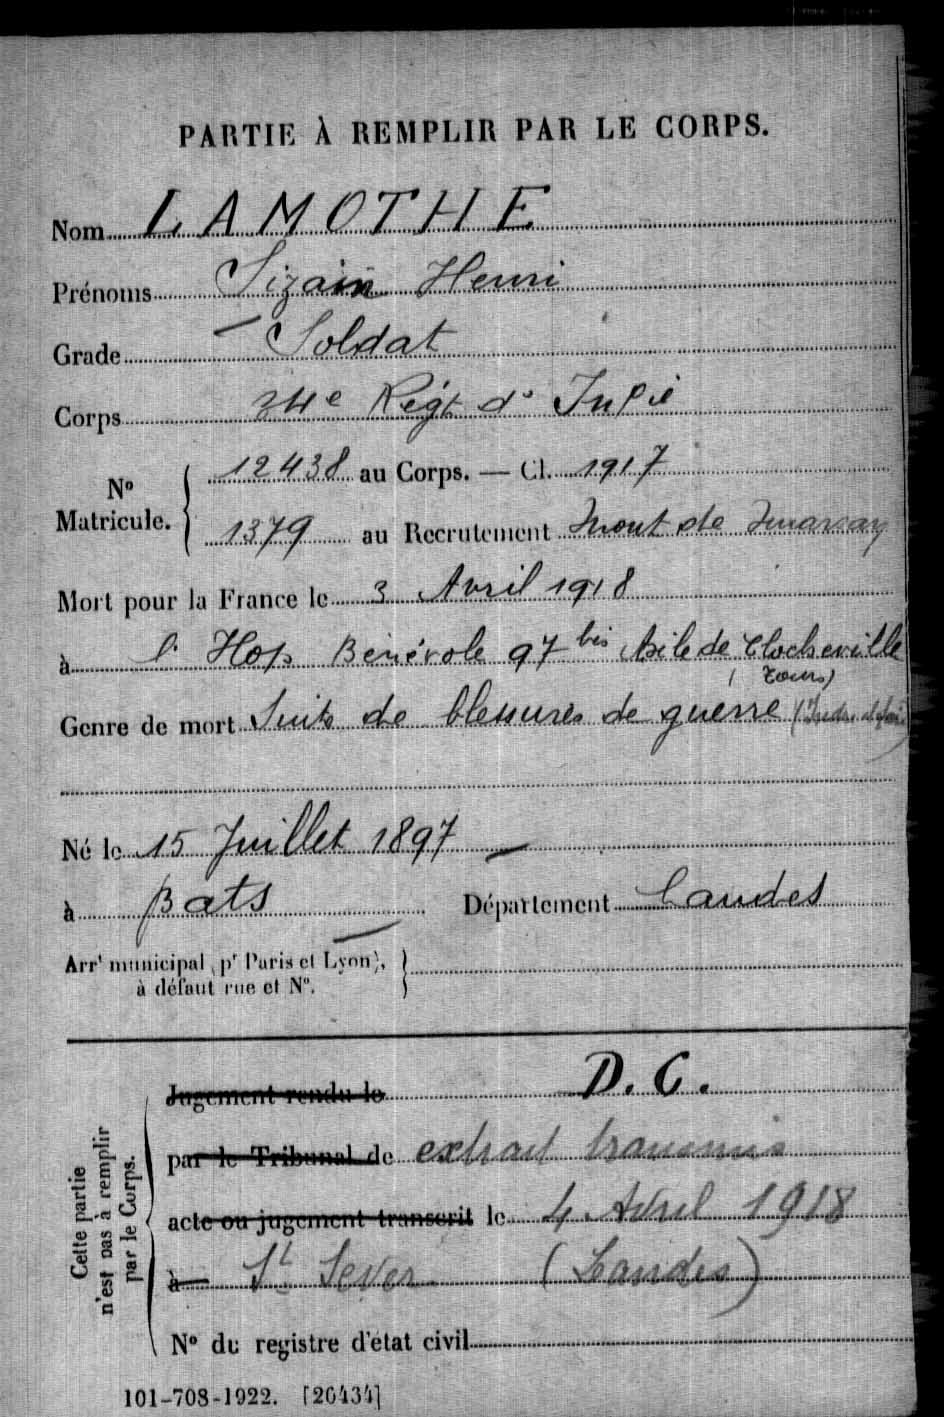 PARTIE À REMPLIR PAR LE CORPS.
Nom LAMOTHE
Prénoms Sizain Henri
Grade Soldat
Corps 34e Régt d' Infie
No Matricule. 12438 au Corps. — Cl. 1917
1379 au Recrutement Mont de Marsan
Mort pour la France le 3 Avril 1918
à l' Hop Bénévole 97 bis Asile de Clocheville
(Tours)
Genre de mort Suite de blessures de guerre (Indre et Loire)
Né le 15 Juillet 1897
à Bats Département Landes
Arrt municipal (pr Paris et Lyon),
à défaut rue et No.
Cette partie
n'est pas à remplir
par le Corps.
Jugement rendu le D. C.
par le Tribunal de extrait transmis
acte ou jugement transcrit le 4 Avril 1918
à St Sever (Landes)
No du registre d'état civil
101-708-1922. [26434]